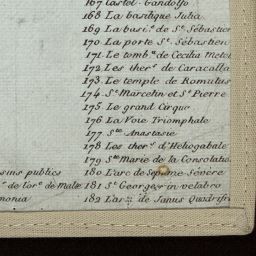 167 Castel-Gandolfo
168 La basilique Julia
169 La basi.e de St. Sébastien
170 La porte St. Sébastien
171 Le tomb.u de Cecilia Metel
172 Les ther.s de Caracalla
173 Le temple de Romulus
174 St. Marcelin et St. Pierre
175 Le grand Cirque
176 La Voie Triomphale
177 Ste. Anastasie
178 Les ther.s d'Héliogabale
179 Ste. Marie de la Consolation
publics 180 L'arc de Septime Sévere
de l'or.e de Malte 181 St. George in velabro
182 L'arc de Janus Quadrifr